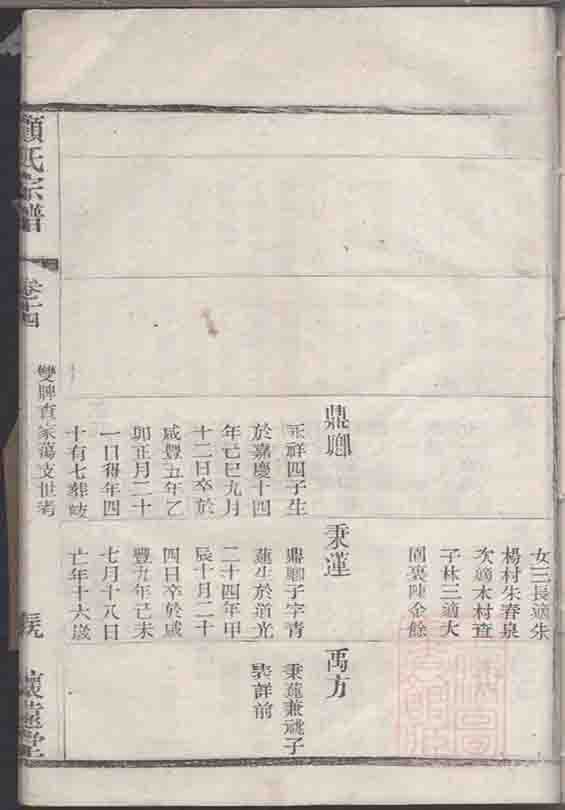 女三長適朱
楊村朱春泉
次適木村查
子林三適大
園裏陳金餘
鼎卿
元祥四子生
於嘉慶十四
年己巳九月
十二日卒於
咸豐五年乙
卯正月二十
一日得年四
十有七葬蛟
秉蓮
鼎卿子字青
蓮生於道光
二十四年甲
辰十月二十
四日卒於咸
豐九年己未
七月十八日
亡年十六歲
禹方
秉蓮兼祧子
表詳前
顧氏宗譜
卷十四
雙牌袁家蕩支世考
懷遠堂